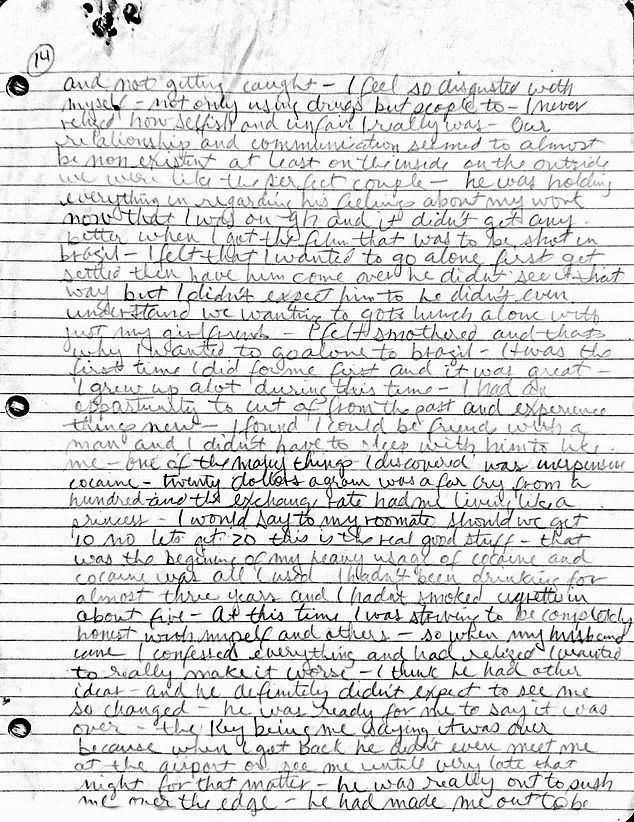 14
and not getting caught - I feel so disgusted with
myself - not only using drugs but people to - I never
relized how selfish and unfair I really was - Our
relationship and communication seemed to almost
be non existent at least on the inside on the outside
we were like the perfect couple - he was holding
everything in regarding his feelings about my work
now that I was on gh and it didn't get any
better when I got the film that was to be shot in
brazil - I felt that I wanted to go alone first get
settled then have him come over he didn't see it that
way but I didn't expect him to he didn't even
understand we wanting to go to lunch alone with
just my girlfriends - I felt smothered and thats
why I wanted to go alone to brazil - It was the
first time I did for me first and it was great -
I grew up alot during this time - I had an
opportunity to cut of from the past and experience
things new - I found I could be friends with a
man and I didn't have to sleep with him to like
me - one of the many things I discovered was inexpensive
cocaine - twenty dollars a gram was a far cry from a
hundred and the exchange rate had me living like a
princess - I would say to my roomate should we get
10 no lets get 20 this is the real good stuff - that
was the begining of my heavy usage of cocaine and
cocaine was all I used I hadn't been drinking for
almost three years and I hadnt smoked cigrettes in
about five - At this time I was striving to be completely
honest with myself and others - so when my husband
came I confessed everything and had relized I wanted
to really make it worse - I think he had other
ideas - and he definitely didn't expect to see me
so changed - he was ready for me to say it was
over - the key being me saying it was over
because when I got back he didnt even meet me
at the airport or see me untill very late that
night for that matter - he was really out to push
me over the edge - he had made me out to be